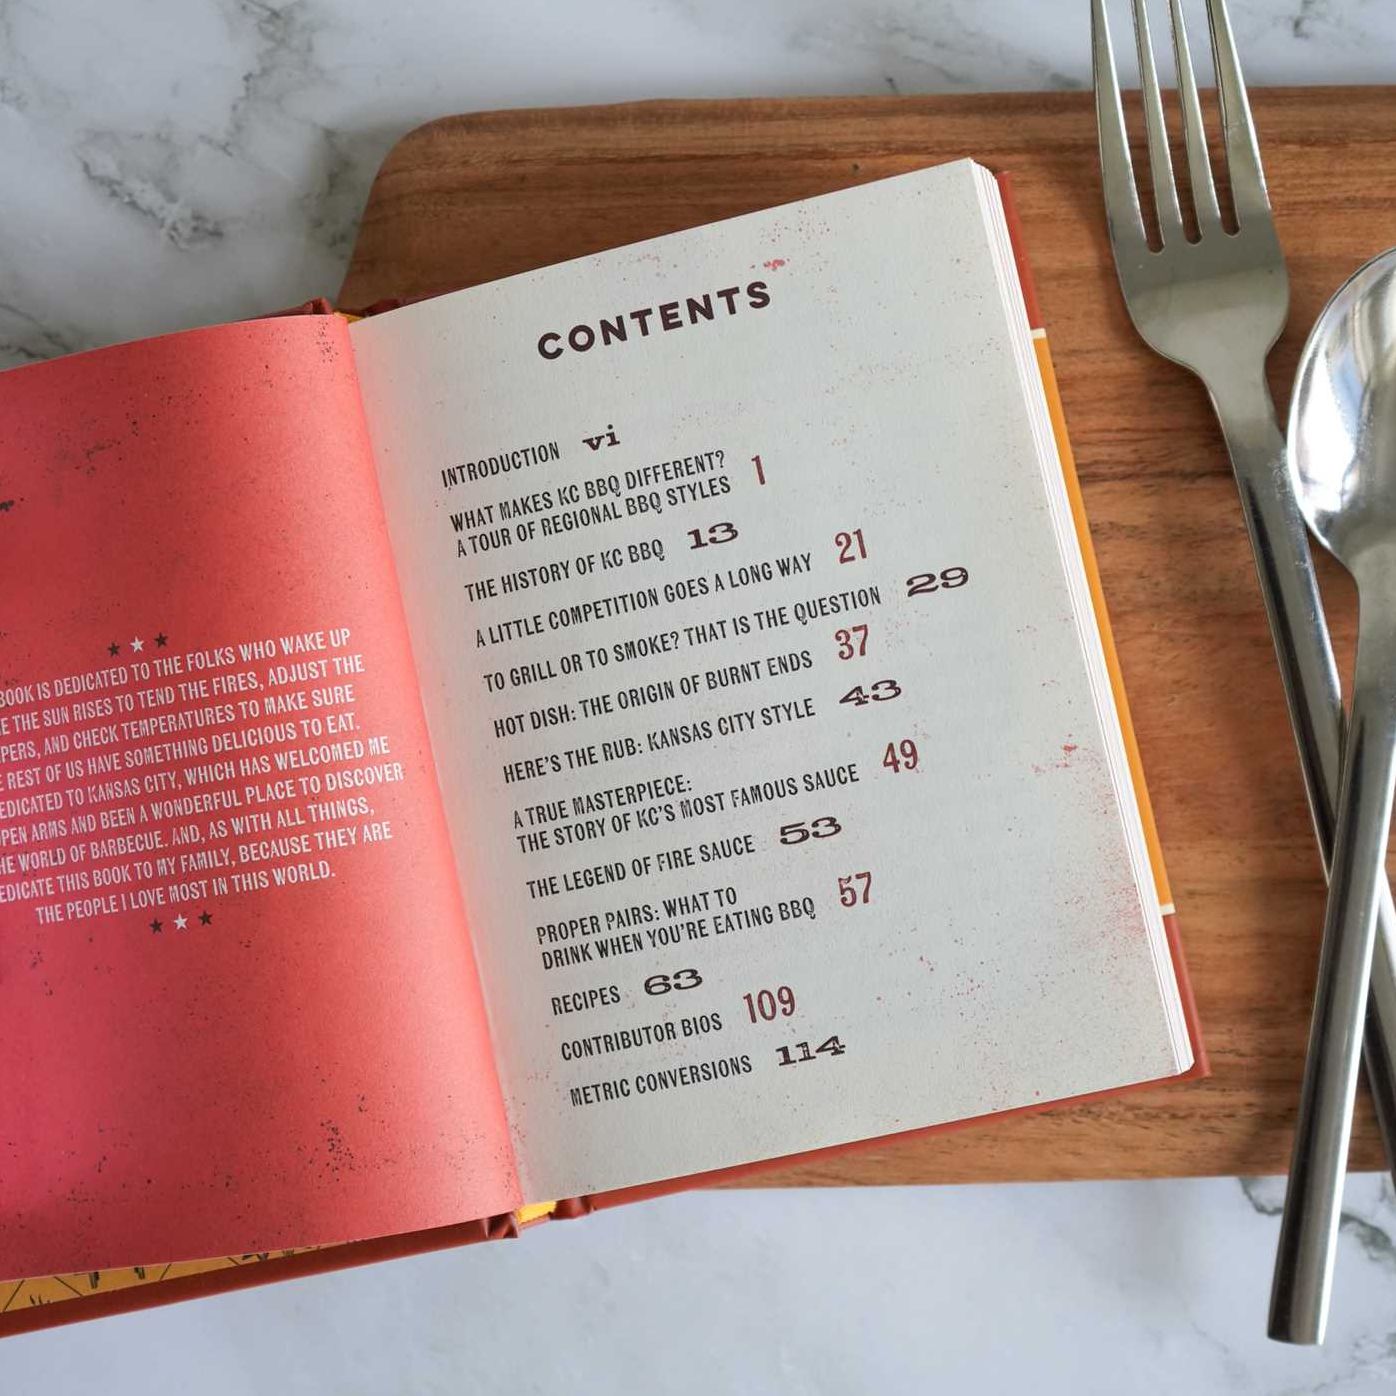 BOOK IS DEDICATED TO THE FOLKS WHO WAKE UP
THE SUN RISES TO TEND THE FIRES, ADJUST THE
AND CHECK TEMPERATURES TO MAKE SURE
REST OF US HAVE SOMETHING DELICIOUS TO EAT.
TO KANSAS CITY, WHICH HAS WELCOMED ME
ARMS AND BEEN A WONDERFUL PLACE TO DISCOVER
WORLD OF BARBECUE. AND, AS WITH ALL THINGS,
THIS BOOK TO MY FAMILY, BECAUSE THEY ARE
THE PEOPLE I LOVE MOST IN THIS WORLD.
CONTENTS
INTRODUCTION vi
WHAT MAKES KC BBQ DIFFERENT?
A TOUR OF REGIONAL BBQ STYLES 1
THE HISTORY OF KC BBQ 13
A LITTLE COMPETITION GOES A LONG WAY 21
TO GRILL OR TO SMOKE? THAT IS THE QUESTION 29
HOT DISH: THE ORIGIN OF BURNT ENDS 37
HERE'S THE RUB: KANSAS CITY STYLE 43
A TRUE MASTERPIECE:
THE STORY OF KC'S MOST FAMOUS SAUCE 49
THE LEGEND OF FIRE SAUCE 53
PROPER PAIRS: WHAT TO
DRINK WHEN YOU'RE EATING BBQ 57
RECIPES 63
CONTRIBUTOR BIOS 109
METRIC CONVERSIONS 114